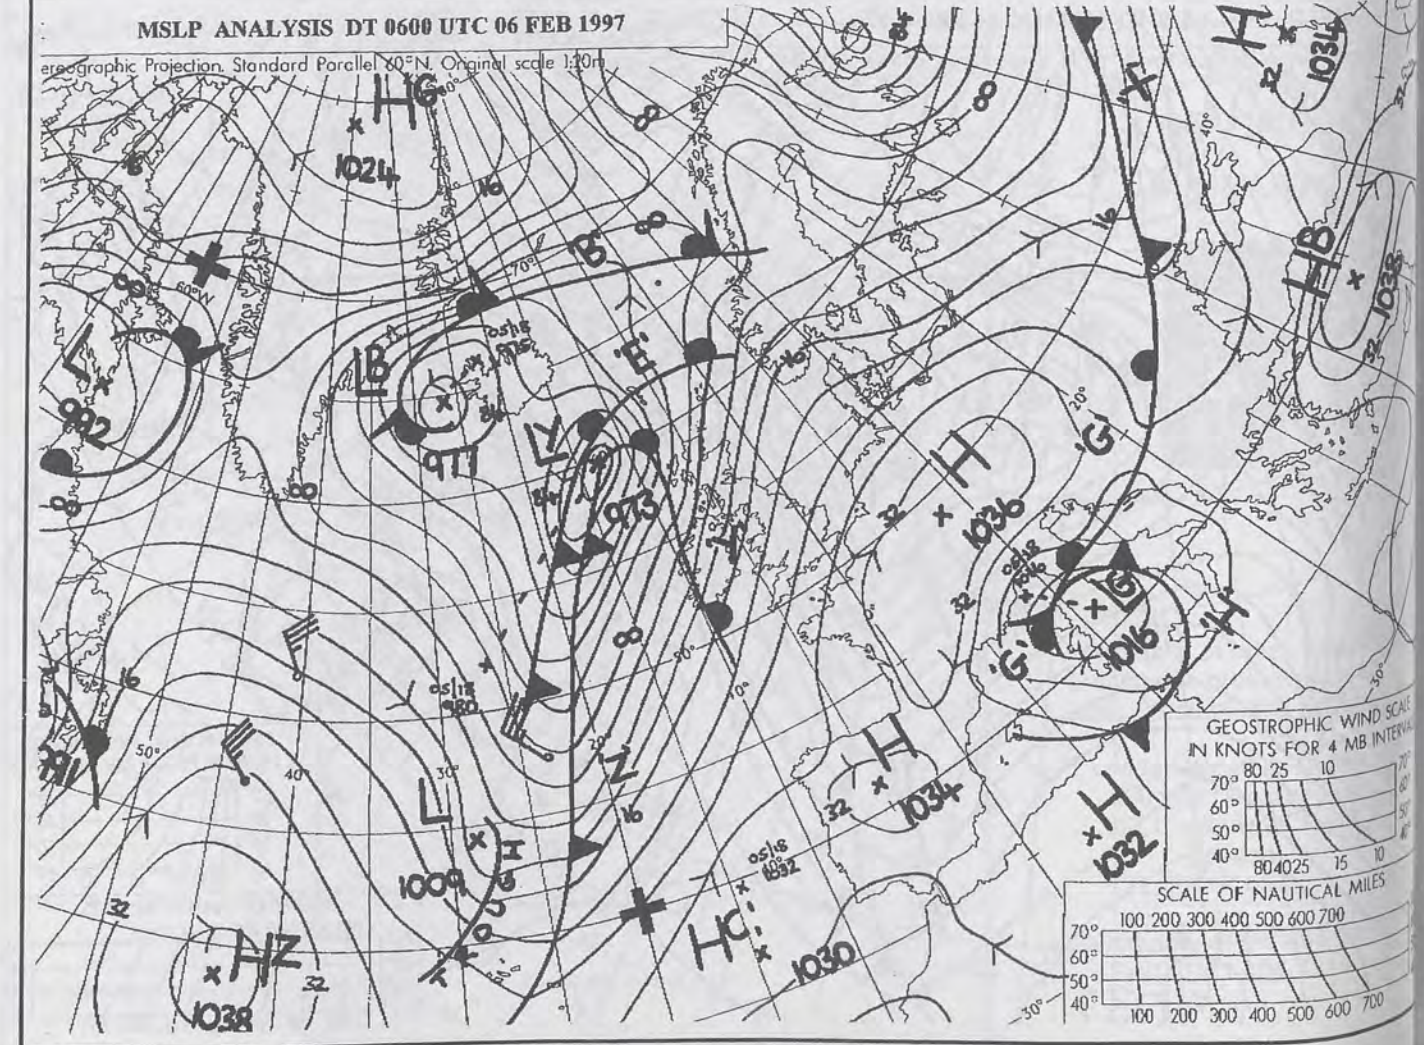 MSLP ANALYSIS DT 0600 UTC 06 FEB 1997
ereographic Projection. Standard Parallel 60°N. Original scale 1:20m
H G
1024
16
8
8
84
8
'X'
H
1034
32
32
40°
16
H B
1038
32
'B'
8
70°
60°W
8
L
992
8
L B
977
84
05/18
975
'E'
16
L Y
84
973
8
20°
'G'
H
1036
32
05/18
32
L G
1016
'G'
'H'
16
05/18
980
50°
40°
30°
20°
10°
50°
8
Z
16
L
1009
H
1034
32
H
1032
05/18
1032
H C
1030
H Z
1038
32
32
30°
30°
GEOSTROPHIC WIND SCALE
IN KNOTS FOR 4 MB INTERVAL
80 25 10
70°
60°
50°
40°
80 40 25 15 10
SCALE OF NAUTICAL MILES
100 200 300 400 500 600 700
70°
60°
50°
40°
100 200 300 400 500 600 700